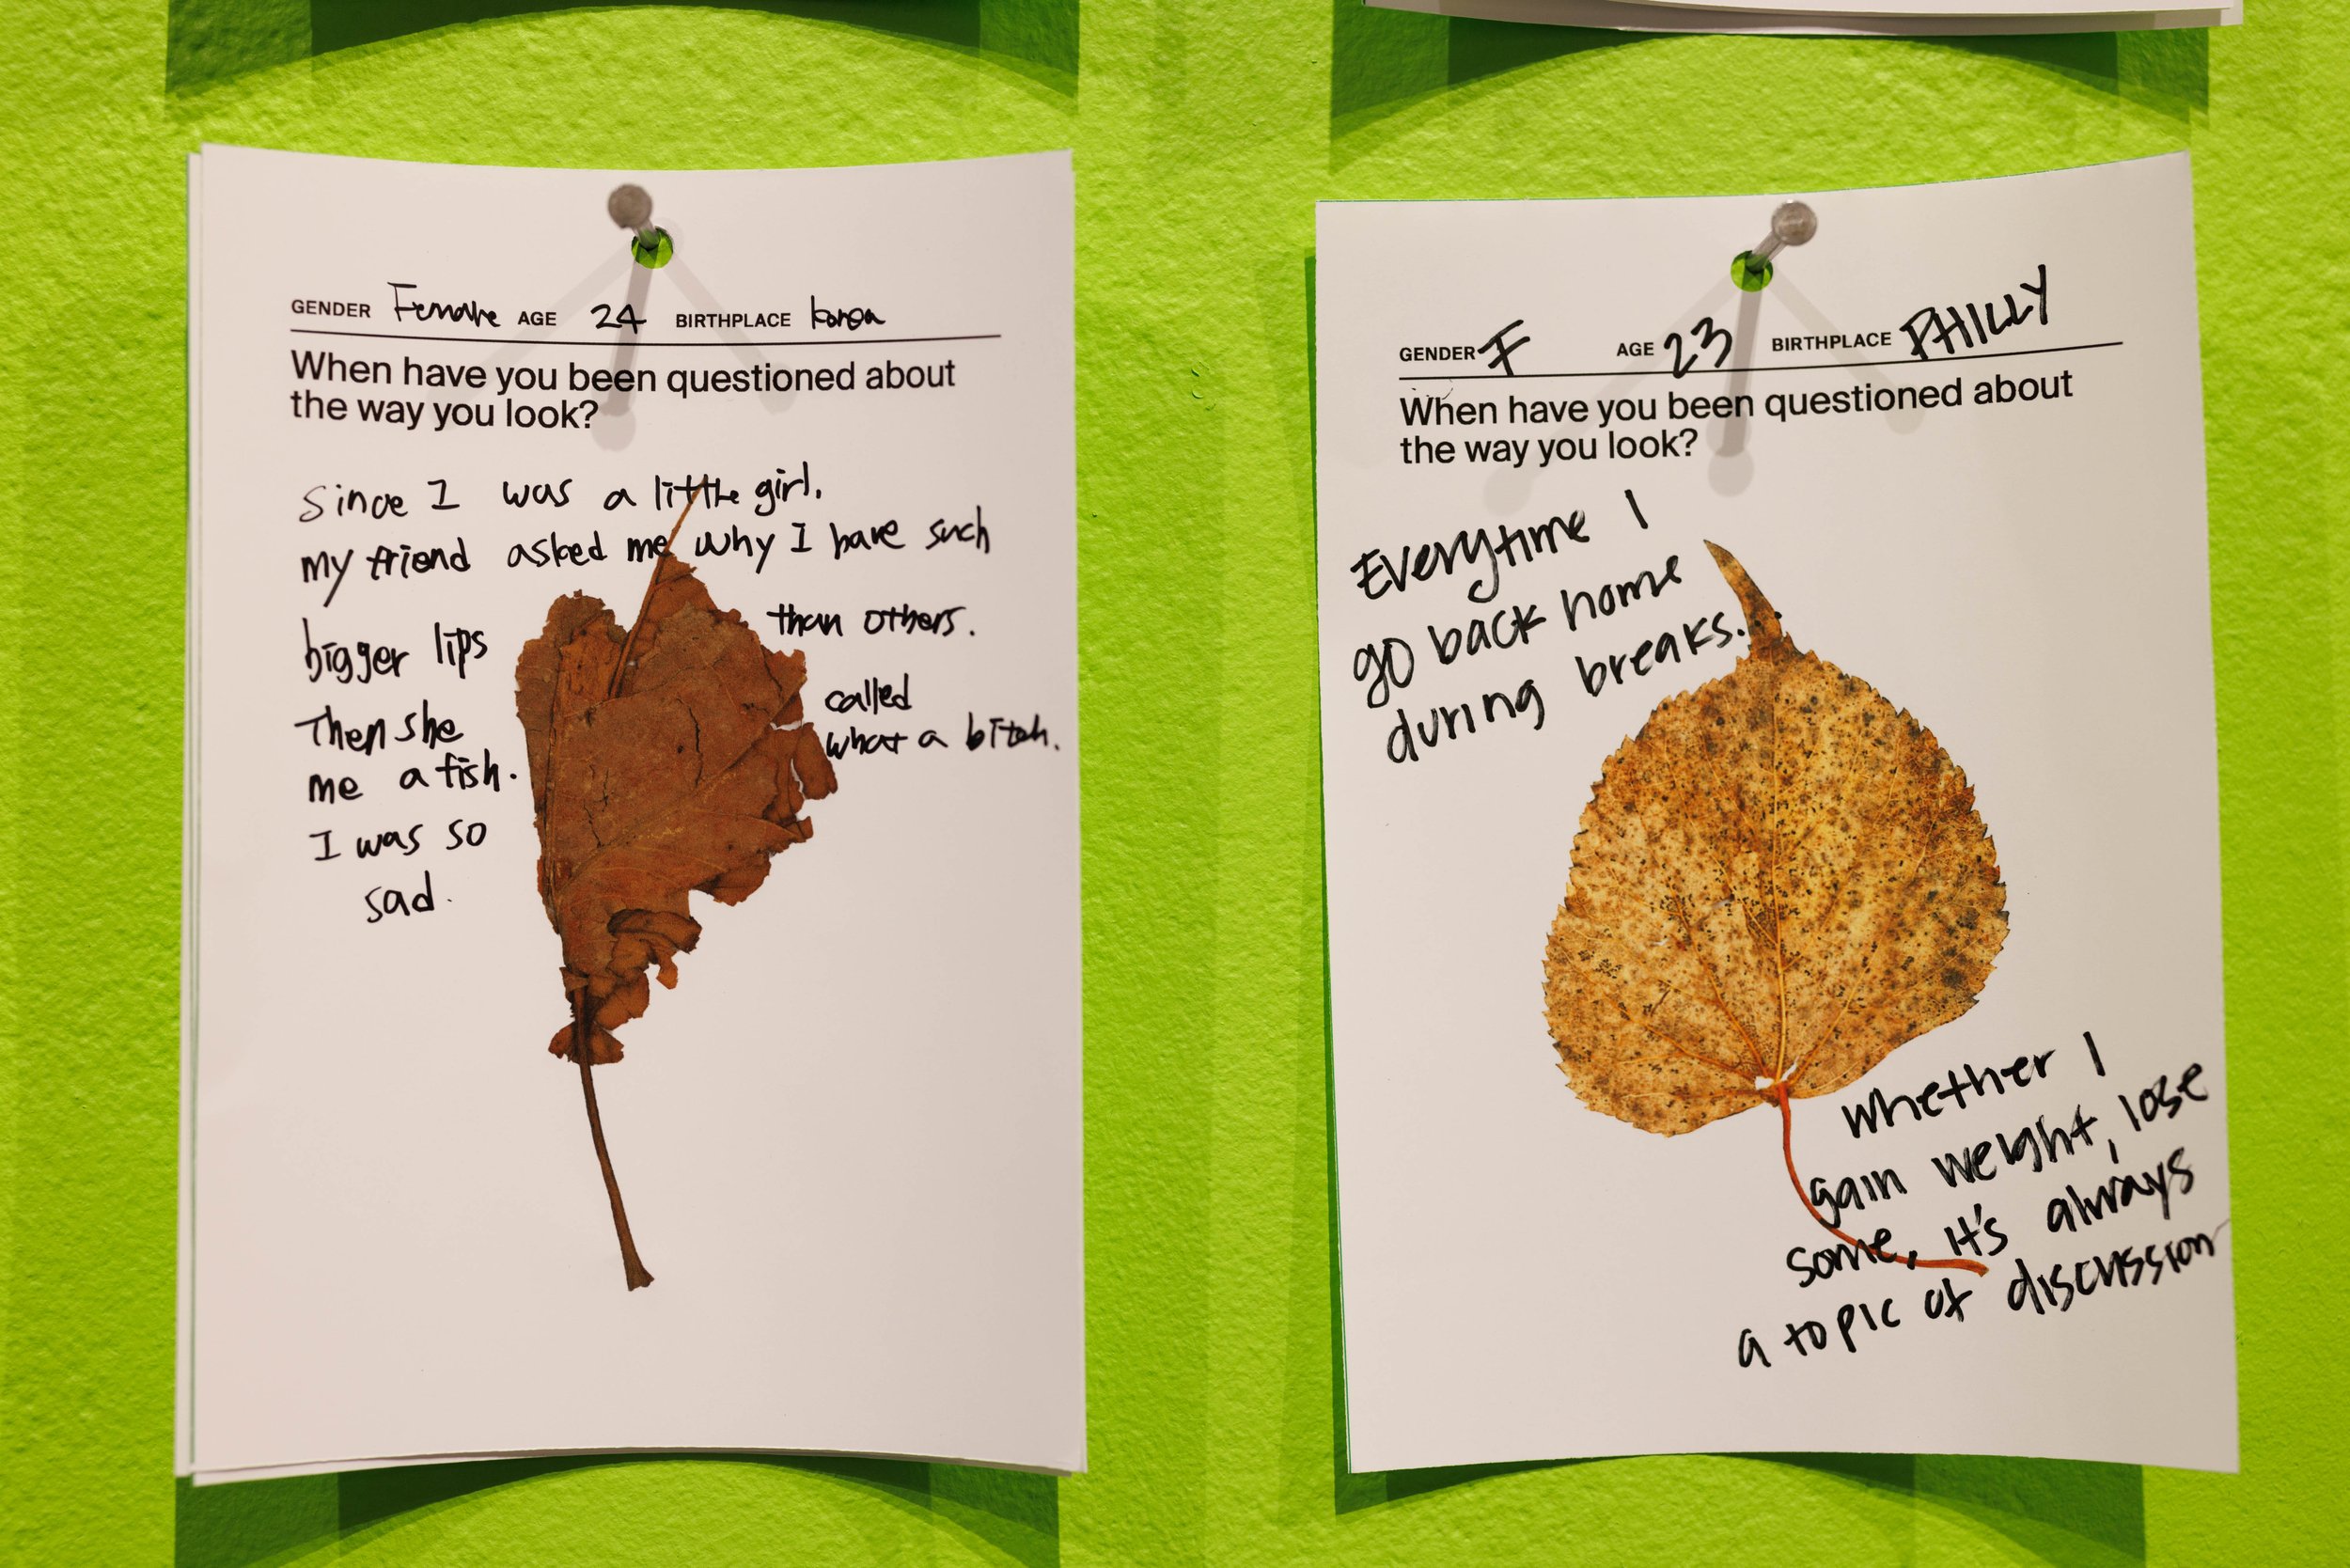 GENDER Female AGE 24 BIRTHPLACE korea
When have you been questioned about
the way you look?
Since I was a little girl.
my friend asked me why I have such
bigger lips than others.
Then she called
me a fish. what a bitch.
I was so
sad.
GENDER F AGE 23 BIRTHPLACE PHILLY
When have you been questioned about
the way you look?
Everytime I
go back home
during breaks.
Whether I
gain weight, lose
some, it's always
a topic of discussion